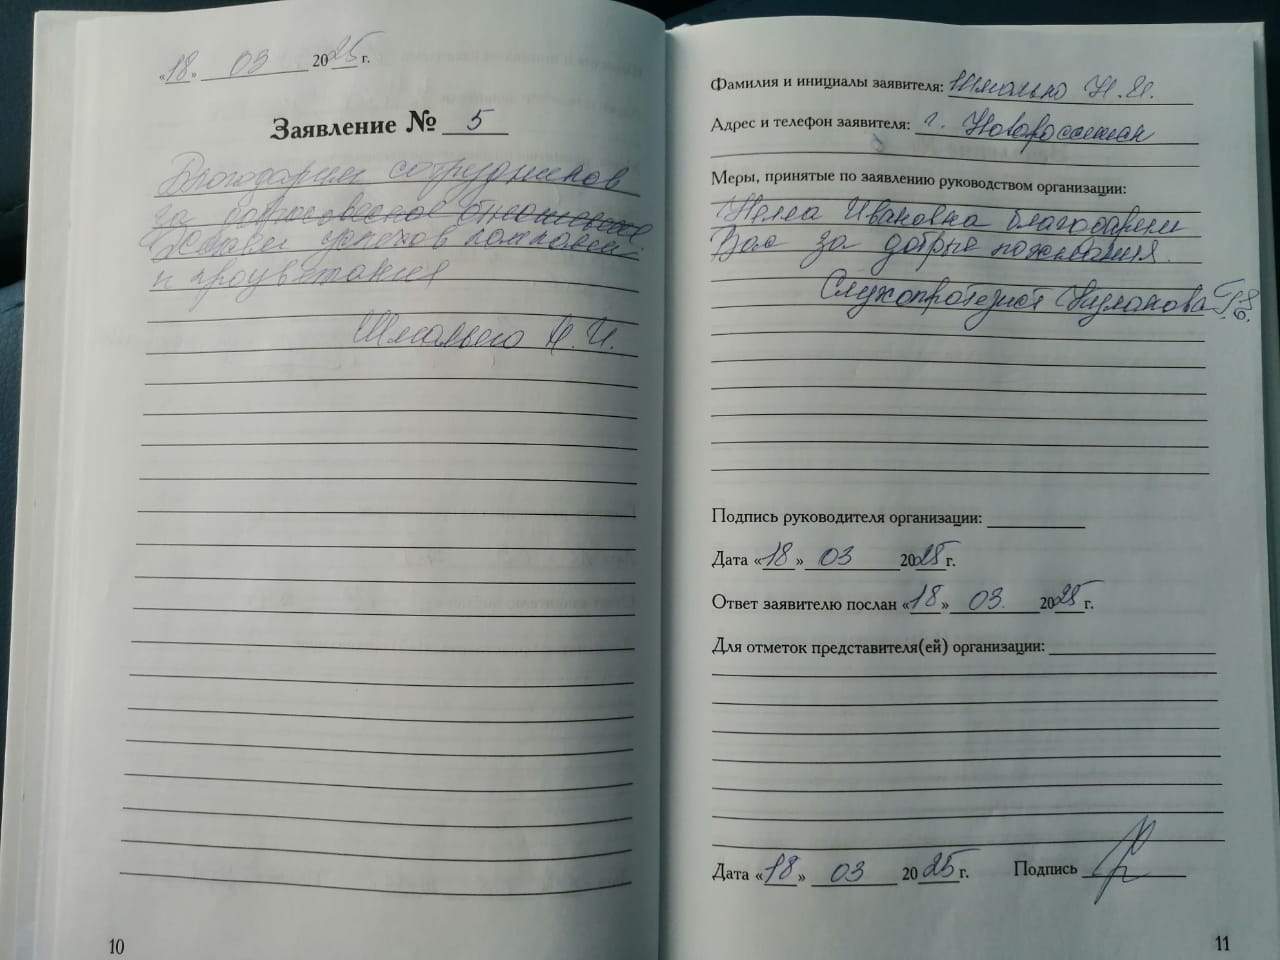 «18» 03 2025 г.
Заявление № 5
Благодарим сотрудников
за добросовестное отношение.
Желаем успехов компании
и процветания
Шмалько Н. И.
10
Фамилия и инициалы заявителя: Шмалько Н. И.
Адрес и телефон заявителя: г. Новороссийск
Меры, принятые по заявлению руководством организации:
Нелла Ивановна благодарим
Вас за добрые пожелания.
Слухопротезист
Подпись руководителя организации:
Дата «18» 03 2025 г.
Ответ заявителю послан «18» 03. 2025 г.
Для отметок представителя(ей) организации:
Дата «18» 03 2025 г. Подпись
11